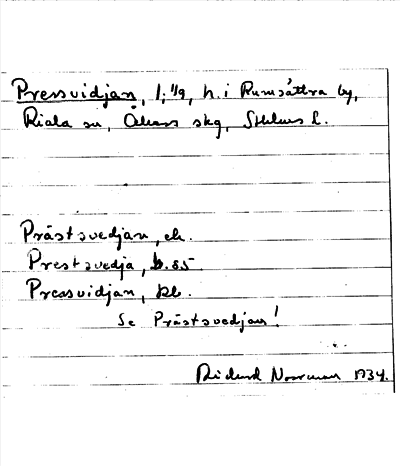 Pressvidjan, 1;19, h. i Rumsättra by,
Riala sn, Åkers skg, Sthlms l.
Prästsvedjan, ek.
Prestsvedja, b. 55
Pressvidjan, kb.
Se Prästsvedjan!
Rickard Norrman 1934.